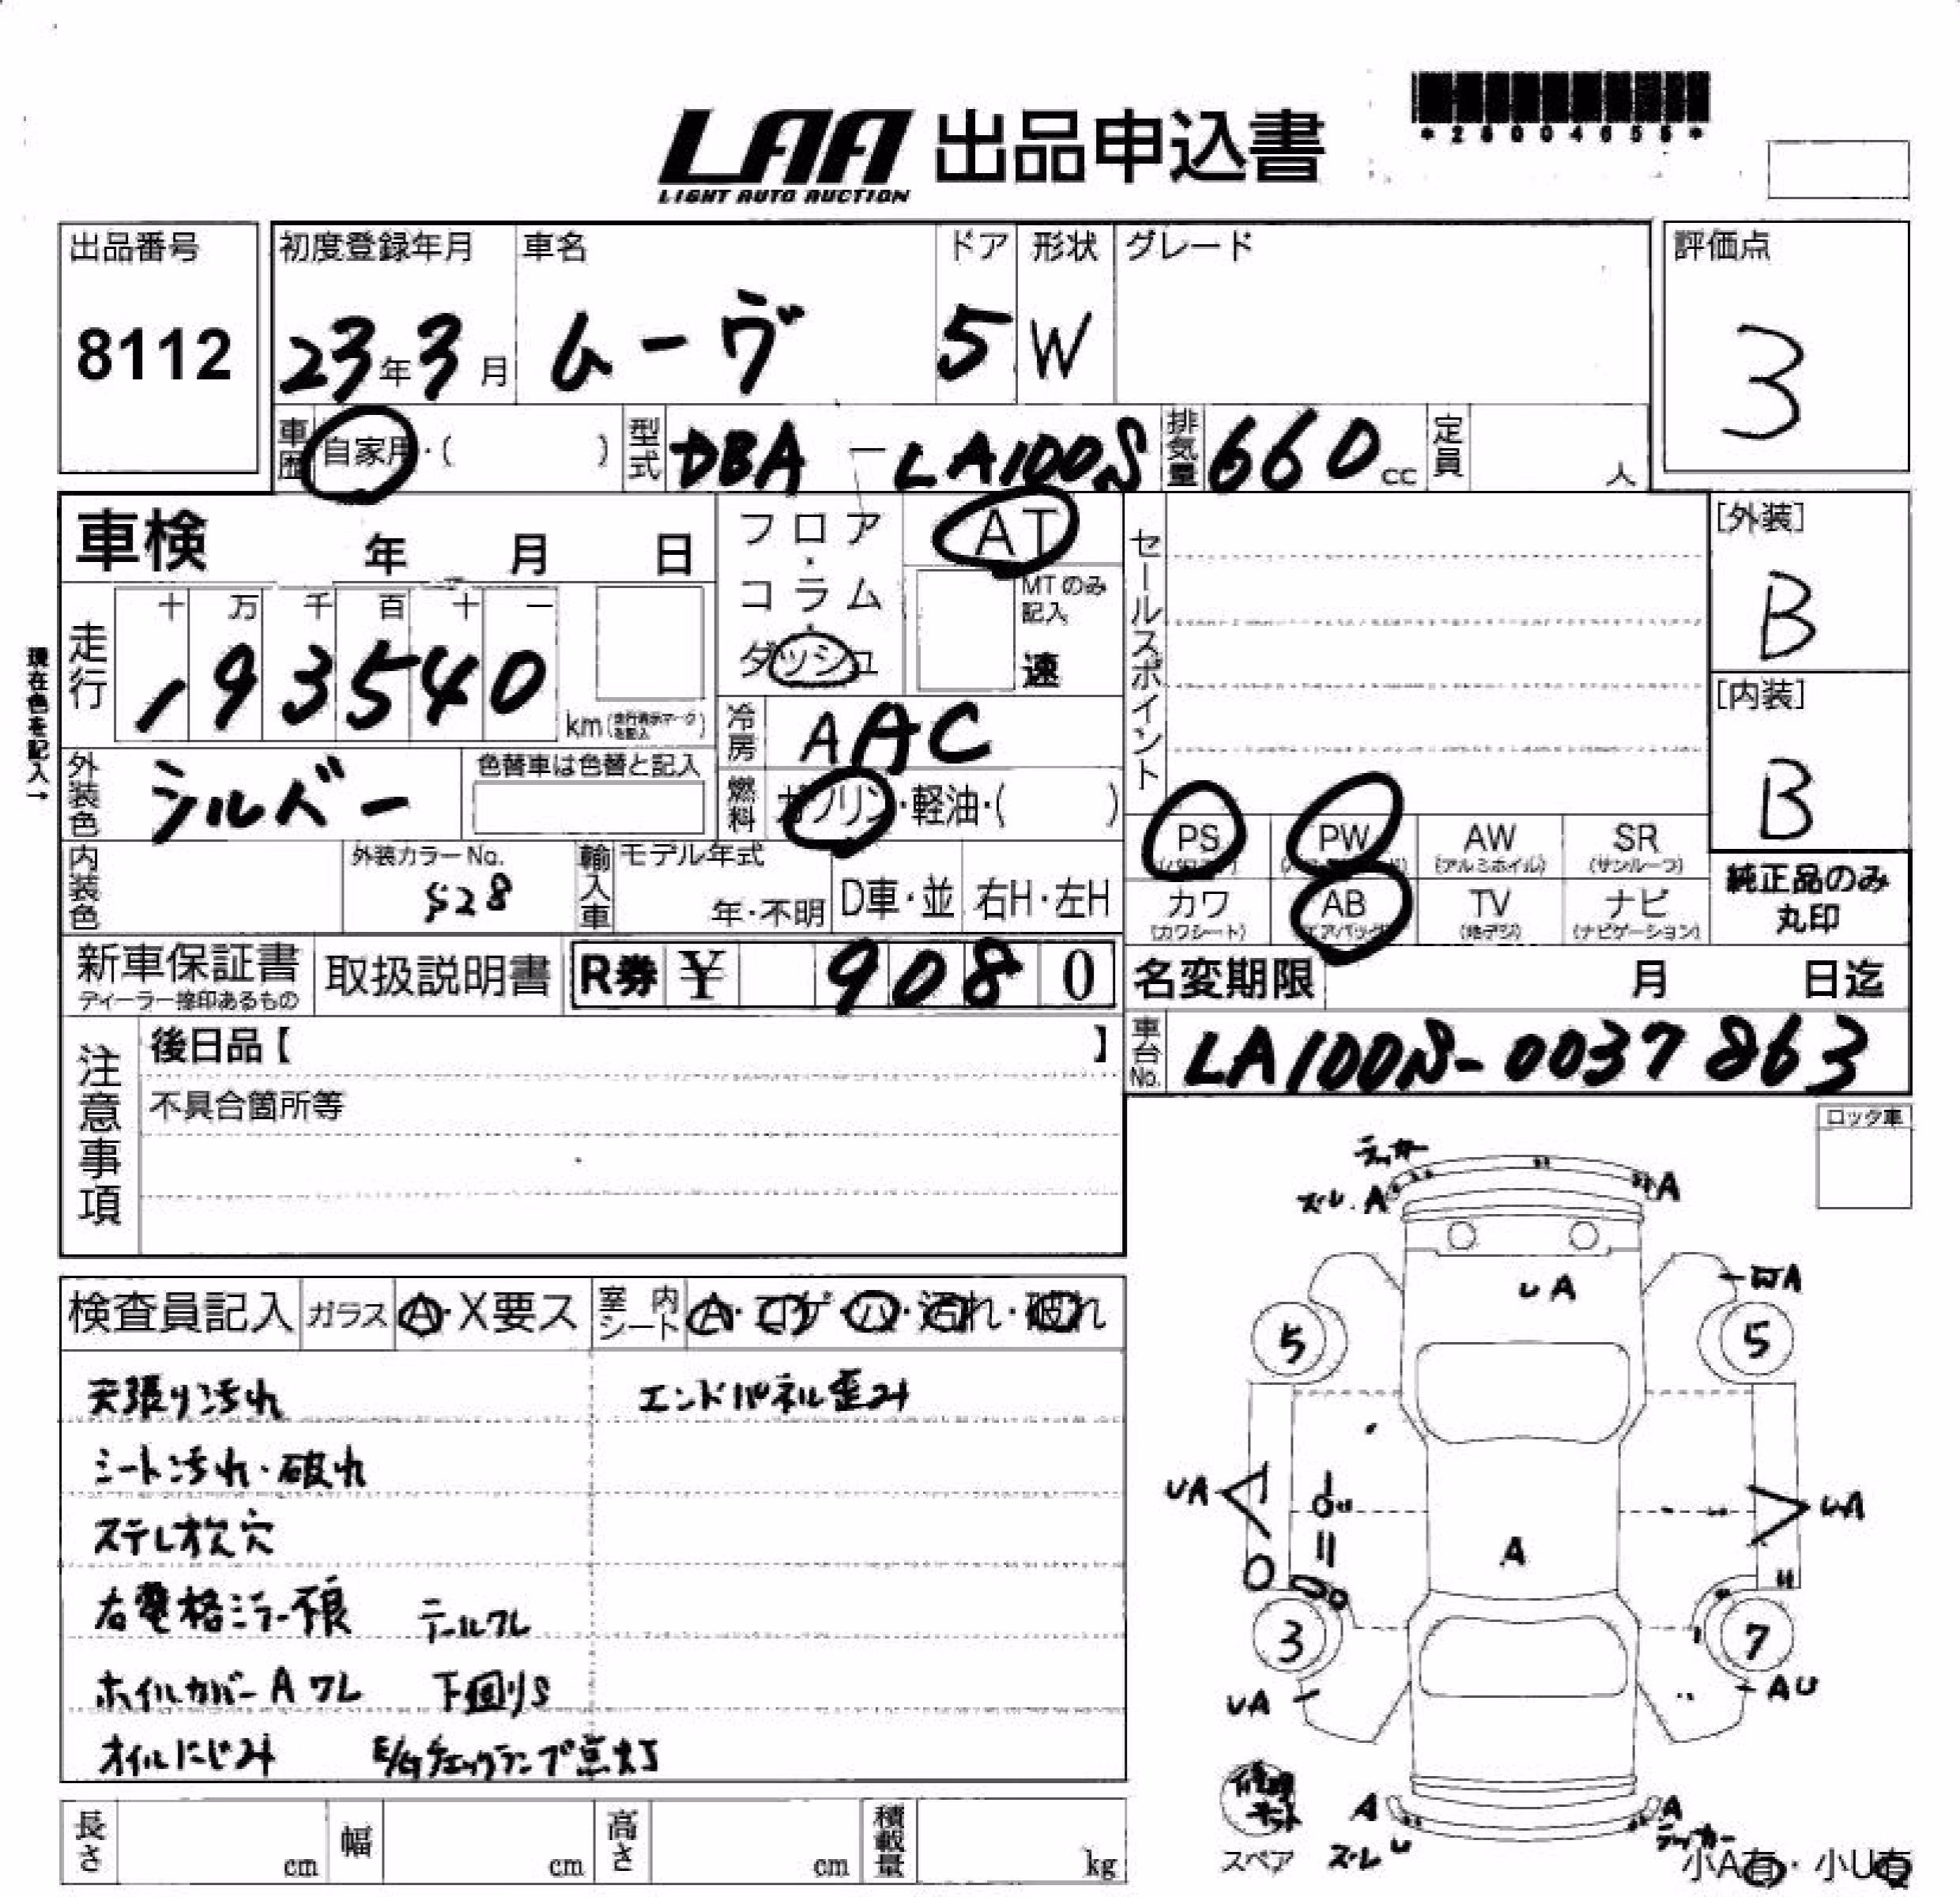 LAA 出品申込書
LIGHT AUTO AUCTION
出品番号
8112
初度登録年月
23年3月
車名
ムーヴ
ドア
5
形状
W
グレード
評価点
3
車歴 自家用・( )
型式 DBA-LA100S
排気量 660 cc
定員 人
車検 年 月 日
フロア・コラム・ダッシュ
AT
MTのみ記入
速
セールスポイント
[外装]
B
[内装]
B
現在色を記入→
走行
十 万 千 百 十 一
193540
km
外装色 シルバー
色替車は色替と記入
冷房 AAC
燃料 ガソリン・軽油・( )
内装色
外装カラーNo.
S28
輸入車
モデル年式
年・不明
D車・並
右H・左H
PS
PW
AW
(アルミホイル)
SR
(サンルーフ)
カワ
(カワシート)
AB
(エアバッグ)
TV
(地デジ)
ナビ
(ナビゲーション)
純正品のみ
丸印
新車保証書
ディーラー捺印あるもの
取扱説明書
R券 ¥ 9080
名変期限 月 日迄
車台No. LA100S-0037863
注意事項
後日品【 】
不具合箇所等
検査員記入
ガラス A・X要ス
室内シート A・コゲ・ハ・汚れ・破れ
天張り汚れ
エンドパネル歪み
シート汚れ・破れ
ステレオ欠穴
右電格ミラー不良 テールワレ
ホイルカバーAワレ 下回りS
オイルにじみ E/Gチェックランプ点灯
長さ cm
幅 cm
高さ cm
積載量 kg
ロック車
ズレ・A
A
UA
5
5
UA
UA
A
3
7
UA
AU
修理キット
スペア
A
ズレ U
A
小A有・小U有